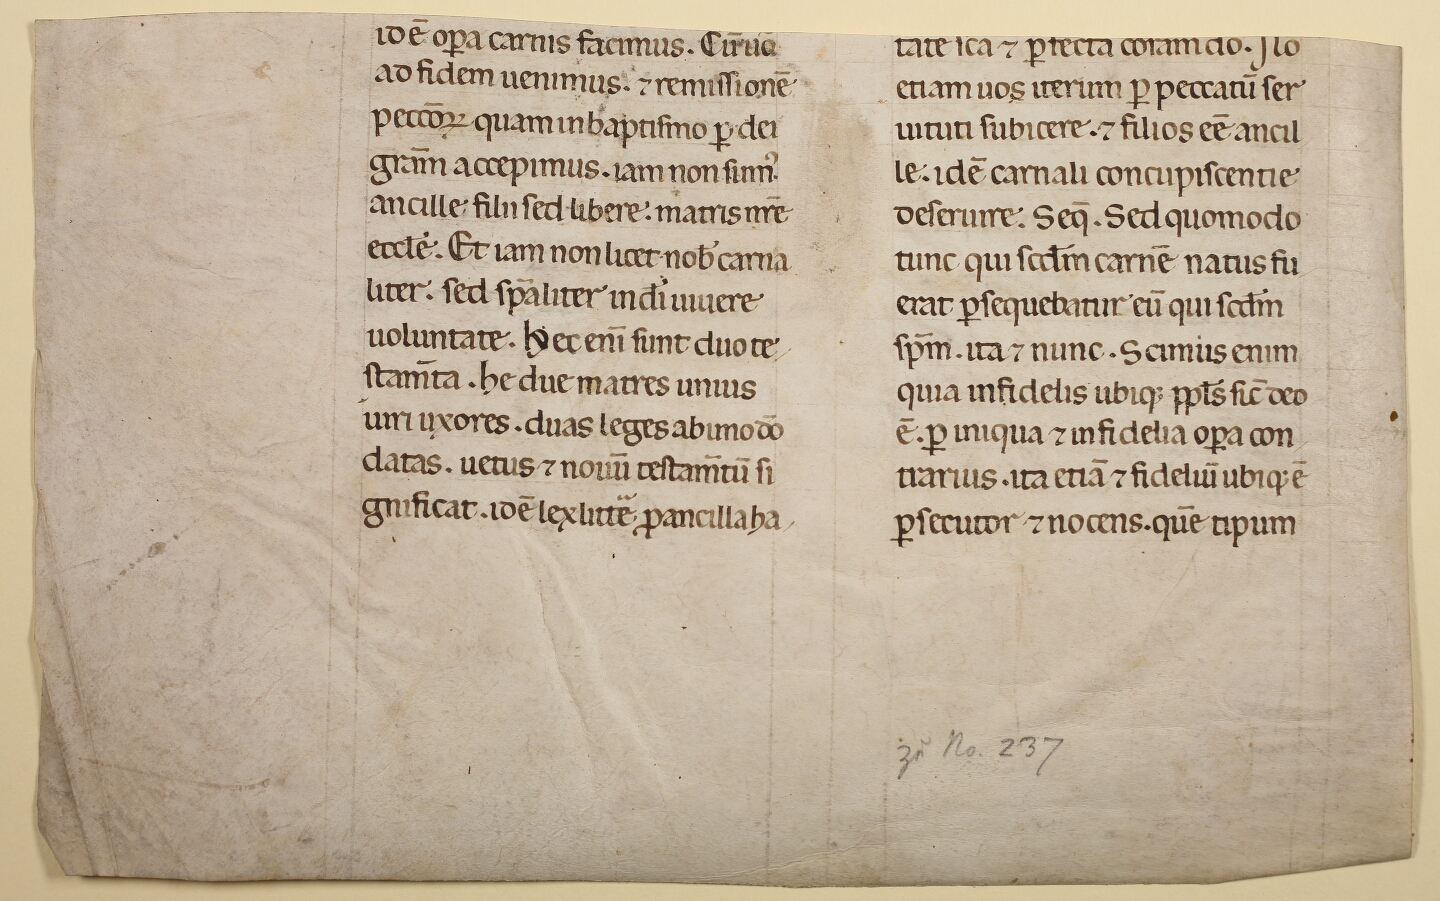 idē op̄a carnis facimus. Cū ū̄
ad fidem uenimus. ⁊ remissionē
peccōꝝ quam in baptismo ꝑ dei
grām accepimus. iam non sumꝰ
ancille filii sed libere. matris nrē
eccl̄e. Et iam non licet nob̄ carna
liter. sed sp̄aliter in d̄i uiuere
uoluntate. Hec eni̅ sunt duo te
stam̄ta. he due matres unius
uiri uxores. duas leges ab uno dō
datas. uetus ⁊ nouū testam̄tū si
gnificat. idē lex litt̄e ꝑ ancilla ha
tate sc̄a ⁊ ꝑfecta coram do.
etiam uos iterum ꝑ peccatū ser
uituti subicere. ⁊ filios eē ancil
le. idē carnali concupiscentie
deseruire. Seq̄. Sed quomodo
tunc qui scd̄m carnē natus fu
erat ꝑsequebatur eū qui scd̄m
sp̄m. ita ⁊ nunc. Scimus enim
quia infidelis ubiqꝫ ppl̄s sic̄ deo
ē. ꝑ iniqua ⁊ infidelia oꝑa con
trarius. ita etiā ⁊ fideliū ubiqꝫ ē
ꝑsecutor ⁊ nocens. quē tipum
zu No. 237